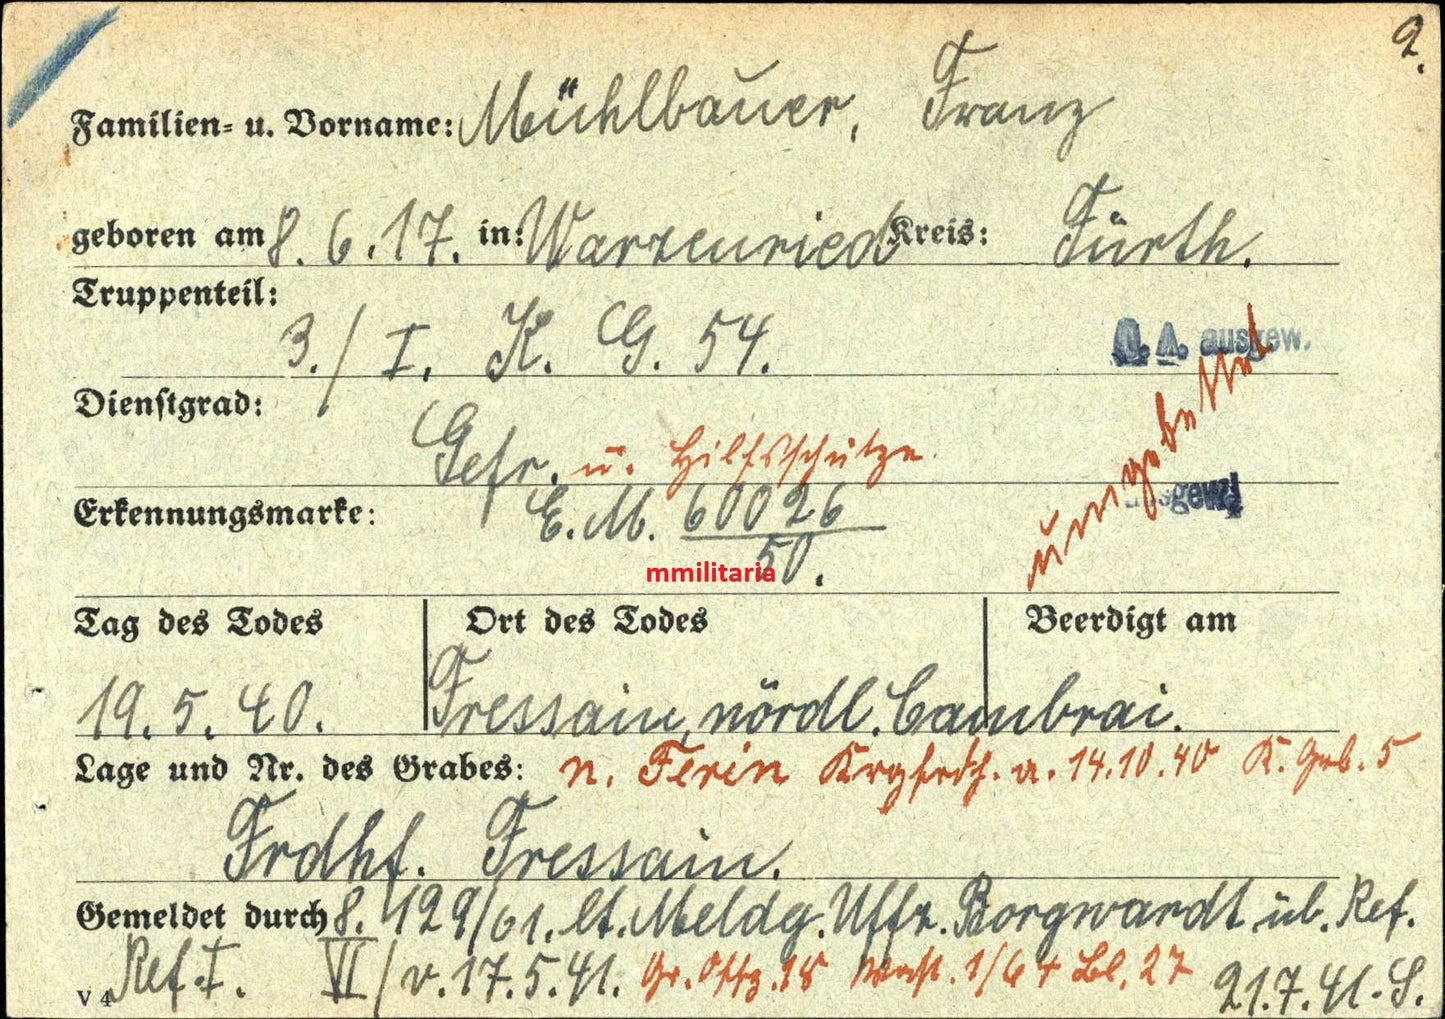 2.
Familien= u. Vorname: Mühlbauer, Franz
geboren am 8. 6. 17. in: Warzenried Kreis: Fürth.
Truppenteil:
3./ I. K. G. 54.
A. ausgew.
Dienstgrad:
Gefr. u. Hilfsschütze
umgebettet
Erkennungsmarke: E. M. 60026
50.
mmilitaria
Tag des Todes Ort des Todes Beerdigt am
19. 5. 40. Fressain, nördl. Cambrai.
Lage und Nr. des Grabes: n. Ferin Krgfrdh. a. 14.10.40 K. Grb. 5
Frdhf. Fressain.
Gemeldet durch 8. 129/61. lt. Meldg. Uffz. Borgwardt üb. Ref.
Ref. I. VI/ v. 17. 5. 41. Gr. Offz. 18 1/64 Bl. 27 21. 7. 41. S.
V 4